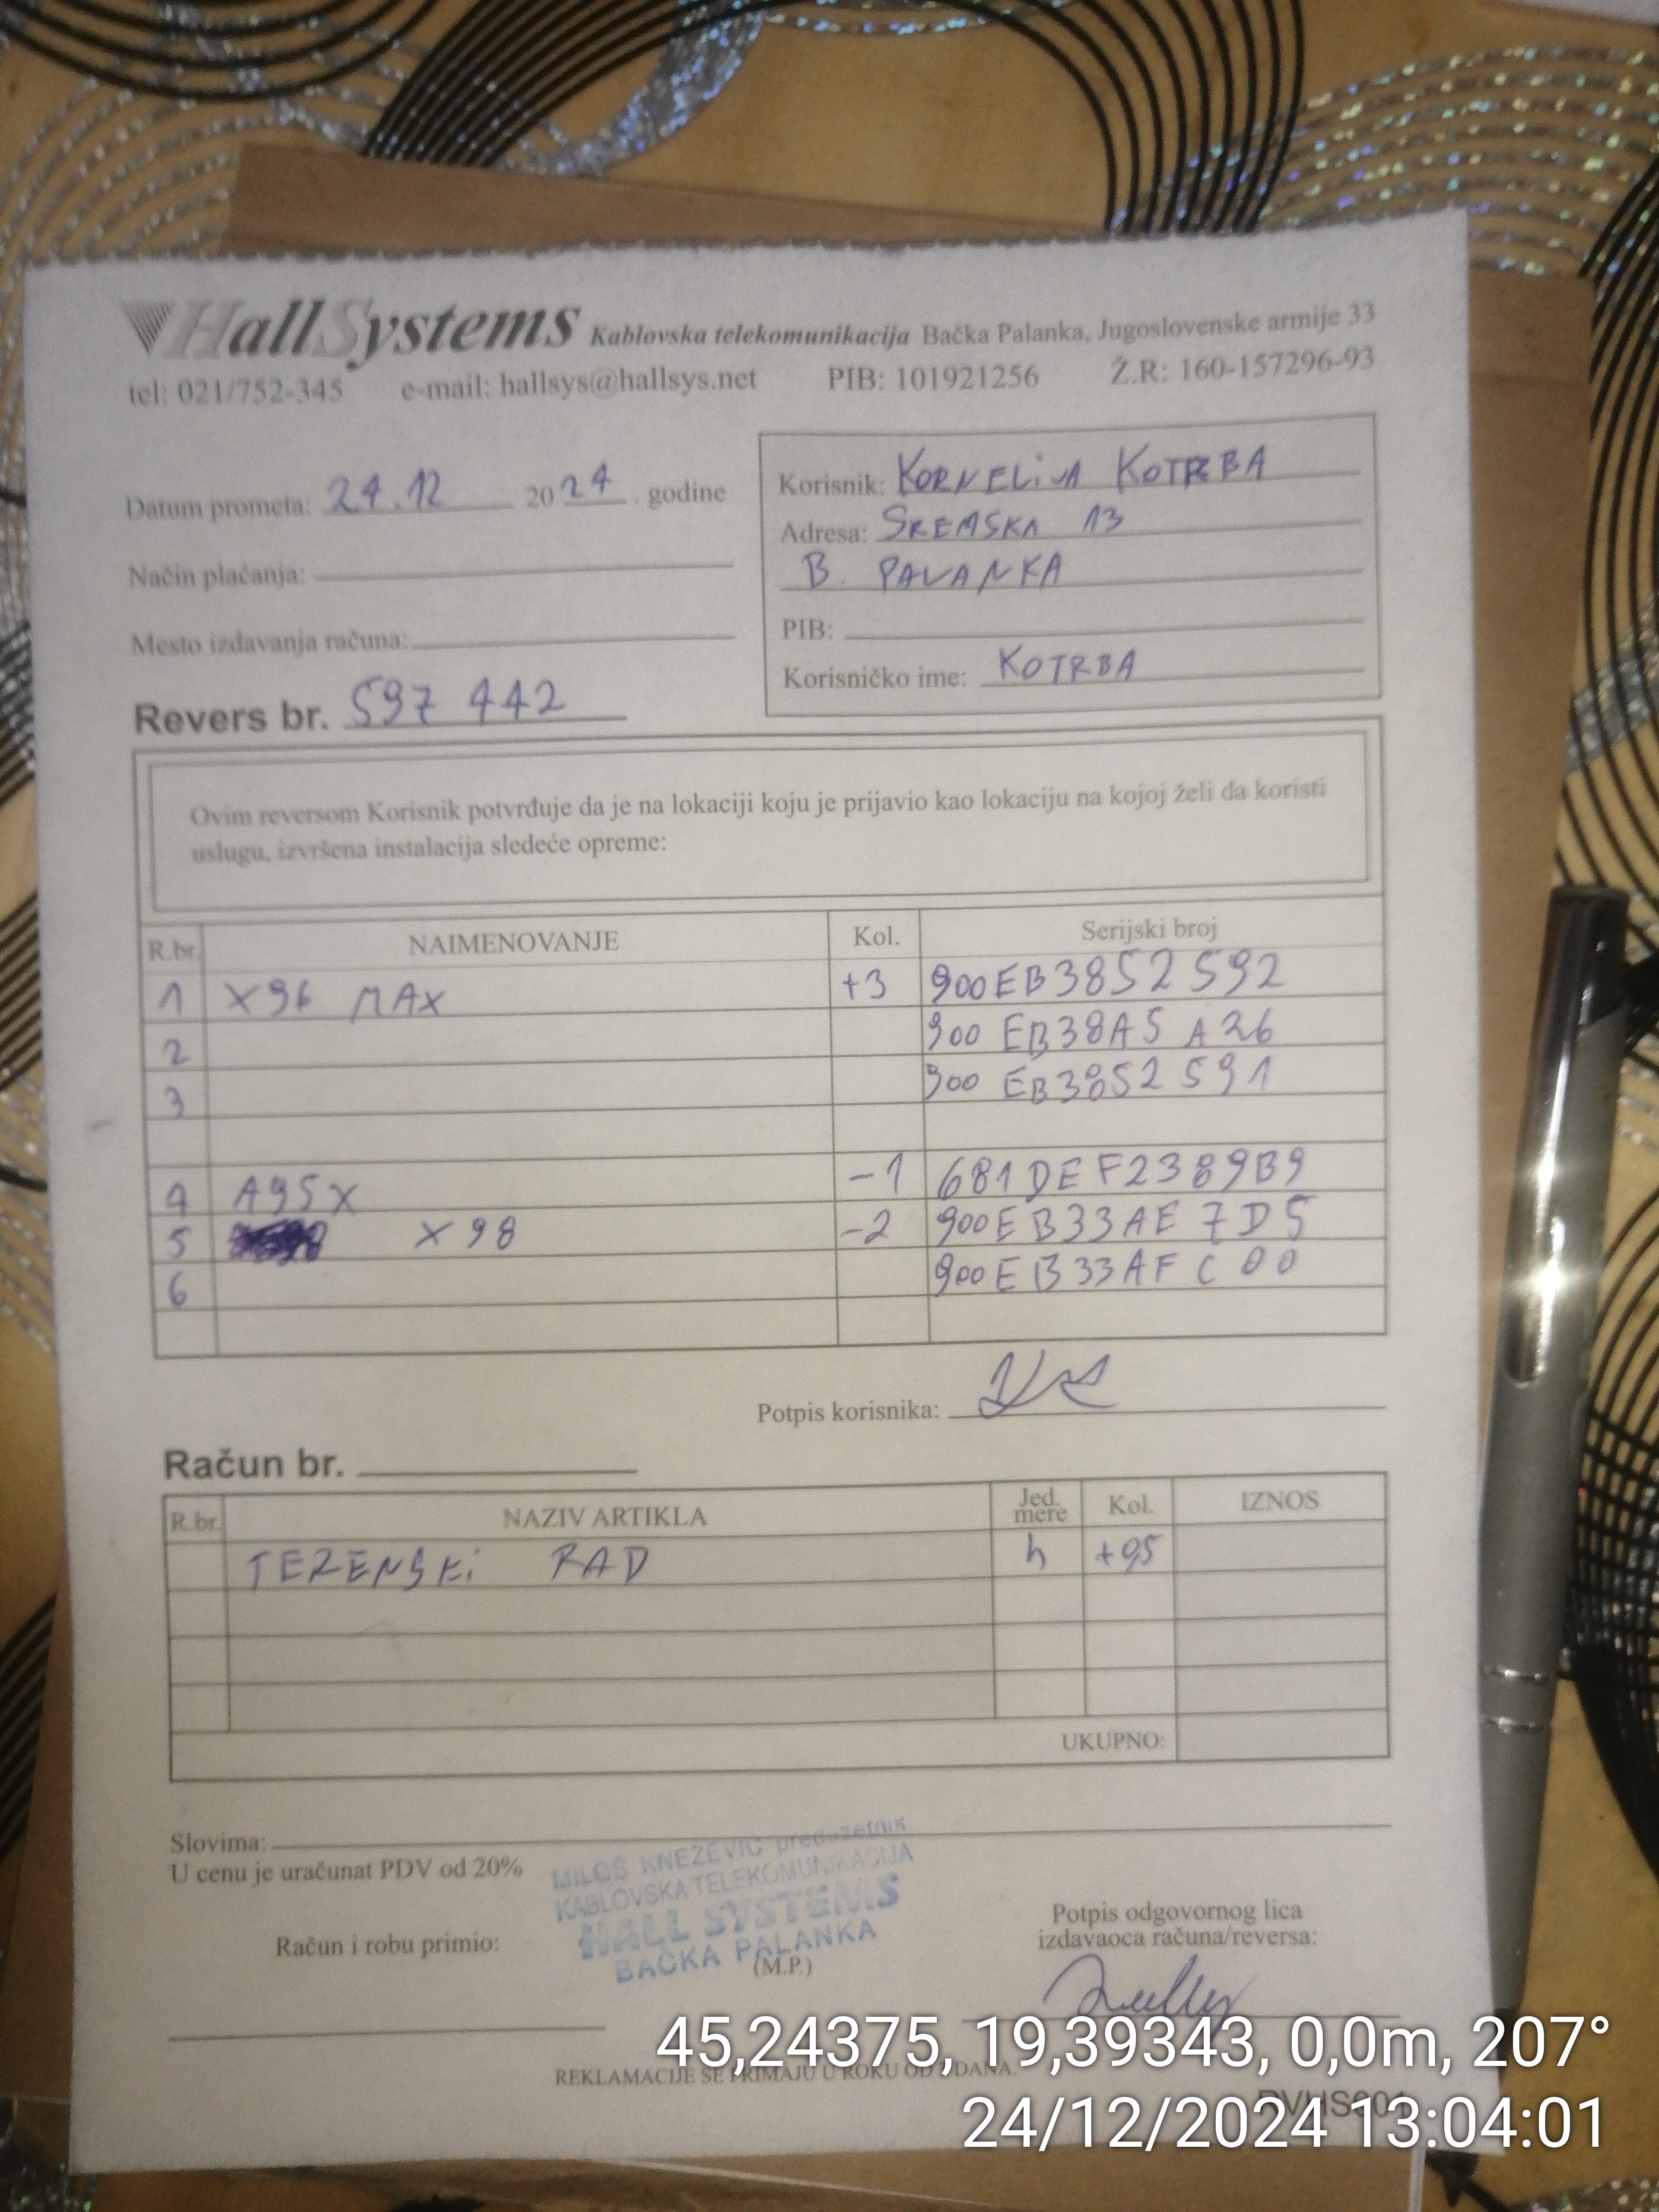 HallSystems Kablovska telekomunikacija Bačka Palanka, Jugoslovenske armije 33
tel: 021/752-345 e-mail: hallsys@hallsys.net PIB: 101921256 Ž.R: 160-157296-93
Datum prometa: 24.12 2024. godine
Način plaćanja:
Mesto izdavanja računa:
Revers br. 597 442
Korisnik: KORNELiJA KOTRBA
Adresa: SREMSKA 13
B. PALANKA
PIB:
Korisničko ime: KOTRBA
Ovim reversom Korisnik potvrđuje da je na lokaciji koju je prijavio kao lokaciju na kojoj želi da koristi
uslugu, izvršena instalacija sledeće opreme:
R.br. NAIMENOVANJE Kol. Serijski broj
1 X96 MAX +3 900EB3852592
2 900 EB38A5 A26
3 900 EB3852591
4 A95X -1 681DEF2389B9
5 X98 -2 900EB33AE7D5
6 900EB33AFC00
Potpis korisnika:
Račun br.
R.br. NAZIV ARTIKLA Jed. mere Kol. IZNOS
TERENSKi RAD h +0,5
UKUPNO:
Slovima:
U cenu je uračunat PDV od 20%
MILOŠ KNEŽEVIĆ preduzetnik
KABLOVSKA TELEKOMUNIKACIJA
HALL SYSTEMS
BAČKA PALANKA
(M.P.)
Račun i robu primio:
Potpis odgovornog lica
izdavaoca računa/reversa:
REKLAMACIJE SE PRIMAJU U ROKU OD DANA.
45,24375, 19,39343, 0,0m, 207°
24/12/2024 13:04:01